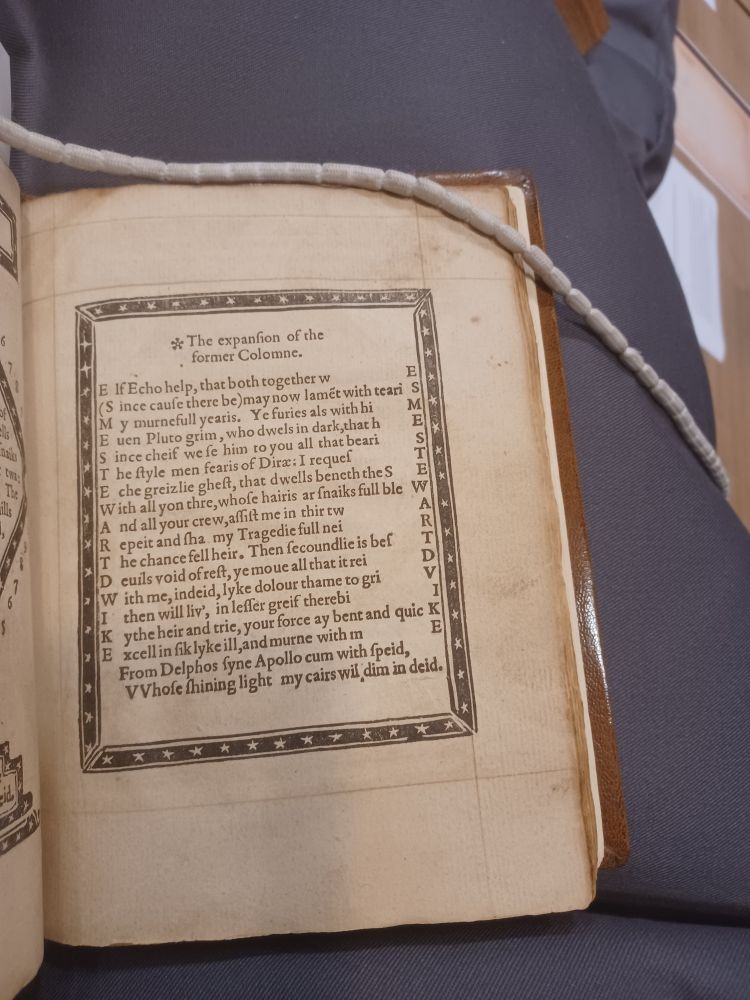 6
7
8
of
naiks
twa:
The
ills
8
7
6
5
eid.
✲ The expanſion of the
former Colomne.
E lf Echo help, that both together w E
(S ince cauſe there be)may now lamēt with teari S
M y murnefull yearis. Ye furies als with hi M
E uen Pluto grim, who dwels in dark,that h E
S ince cheif we ſe him to you all that beari S
T he ſtyle men fearis of Diræ: I requeſ T
E che greizlie gheſt, that dwells beneth the S E
W ith all yon thre, whoſe hairis ar ſnaiks full ble W
A nd all your crew, aſſiſt me in thir tw A
R epeit and ſha my Tragedie full nei R
T he chance fell heir. Then ſecoundlie is beſ T
D euils void of reſt, ye moue all that it rei D
W ith me, indeid, lyke dolour thame to gri V
I then will liv', in leſſer greif therebi I
K ythe heir and trie, your force ay bent and quic K
E xcell in ſik lyke ill, and murne with m E
From Delphos ſyne Apollo cum with ſpeid,
VVhoſe ſhining light my cairs wil dim in deid.